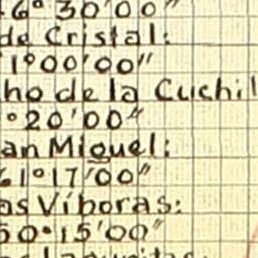 6° 30'00"
de Cristal:
1°00'00"
ho de la Cuchil
°20'00"
an Miguel:
61°17'00"
as Víboras:
50°15'00"